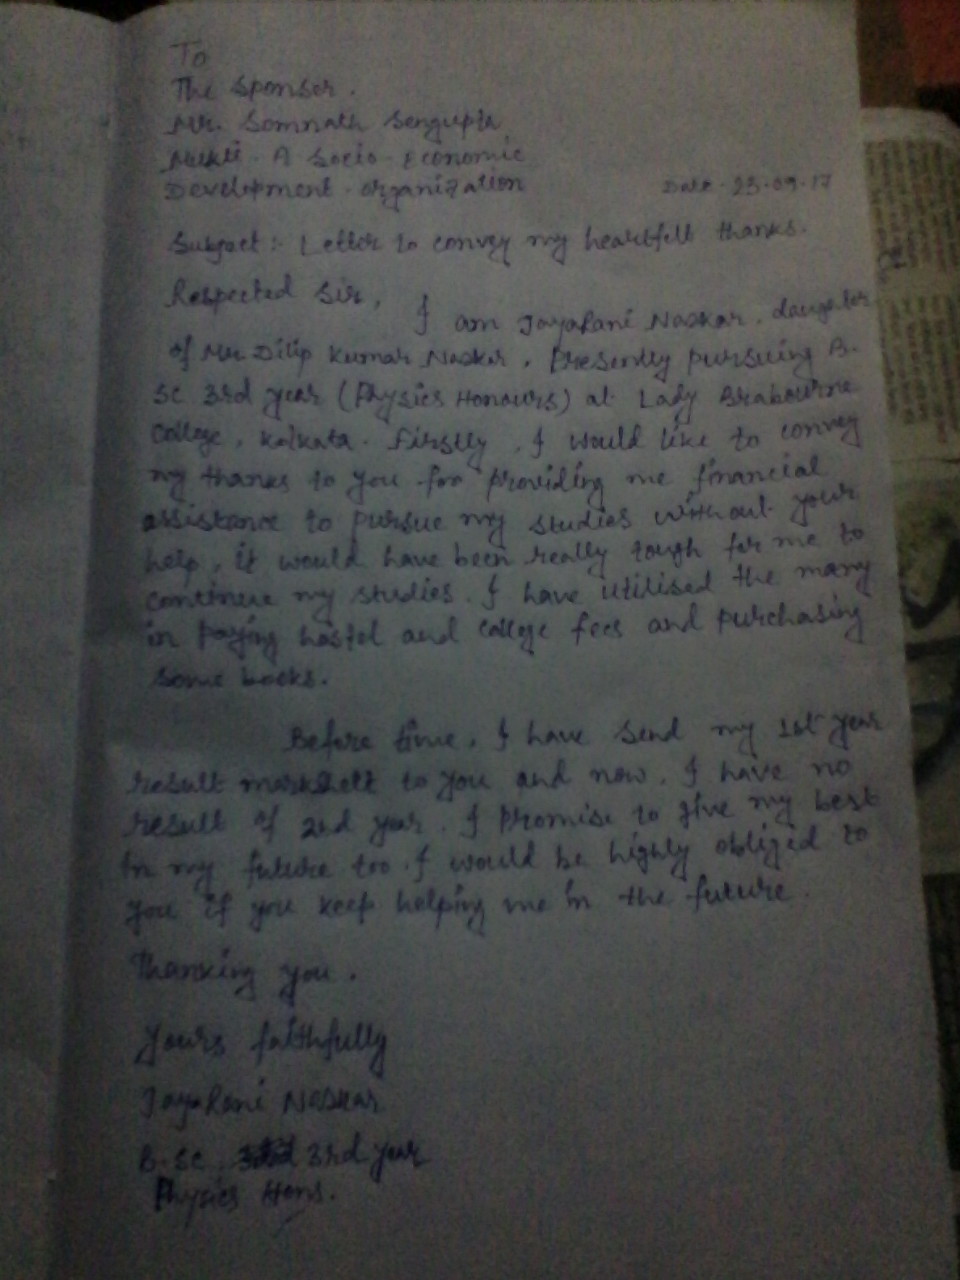 To
The Sponser.
Mr. Somnath Sengupta
Mukti - A Socio-Economic
Development organization
Date - 23-09-17
Subject :- Letter to convey my heartfelt thanks.
Respected Sir,
I am JayaRani Naskar, daughter
of Mr. Dilip Kumar Naskar. Presently pursuing B.
Sc 3rd year (Physics Honours) at Lady Brabourne
College, Kolkata. Firstly, I would like to convey
my thanks to you for providing me financial
assistance to pursue my studies without your
help, it would have been really tough for me to
continue my studies. I have utilised the many
in paying hostol and college fees and purchasing
some books.
Before time, I have send my 1st year
result to you and now, I have no
result of 2nd year. I promise to give my best
in my future too. I would be highly obliged to
you if you keep helping me in the future.
Thanking you.
Yours faithfully
JayaRani Naskar
B.Sc 3rd year
Physics Hons.